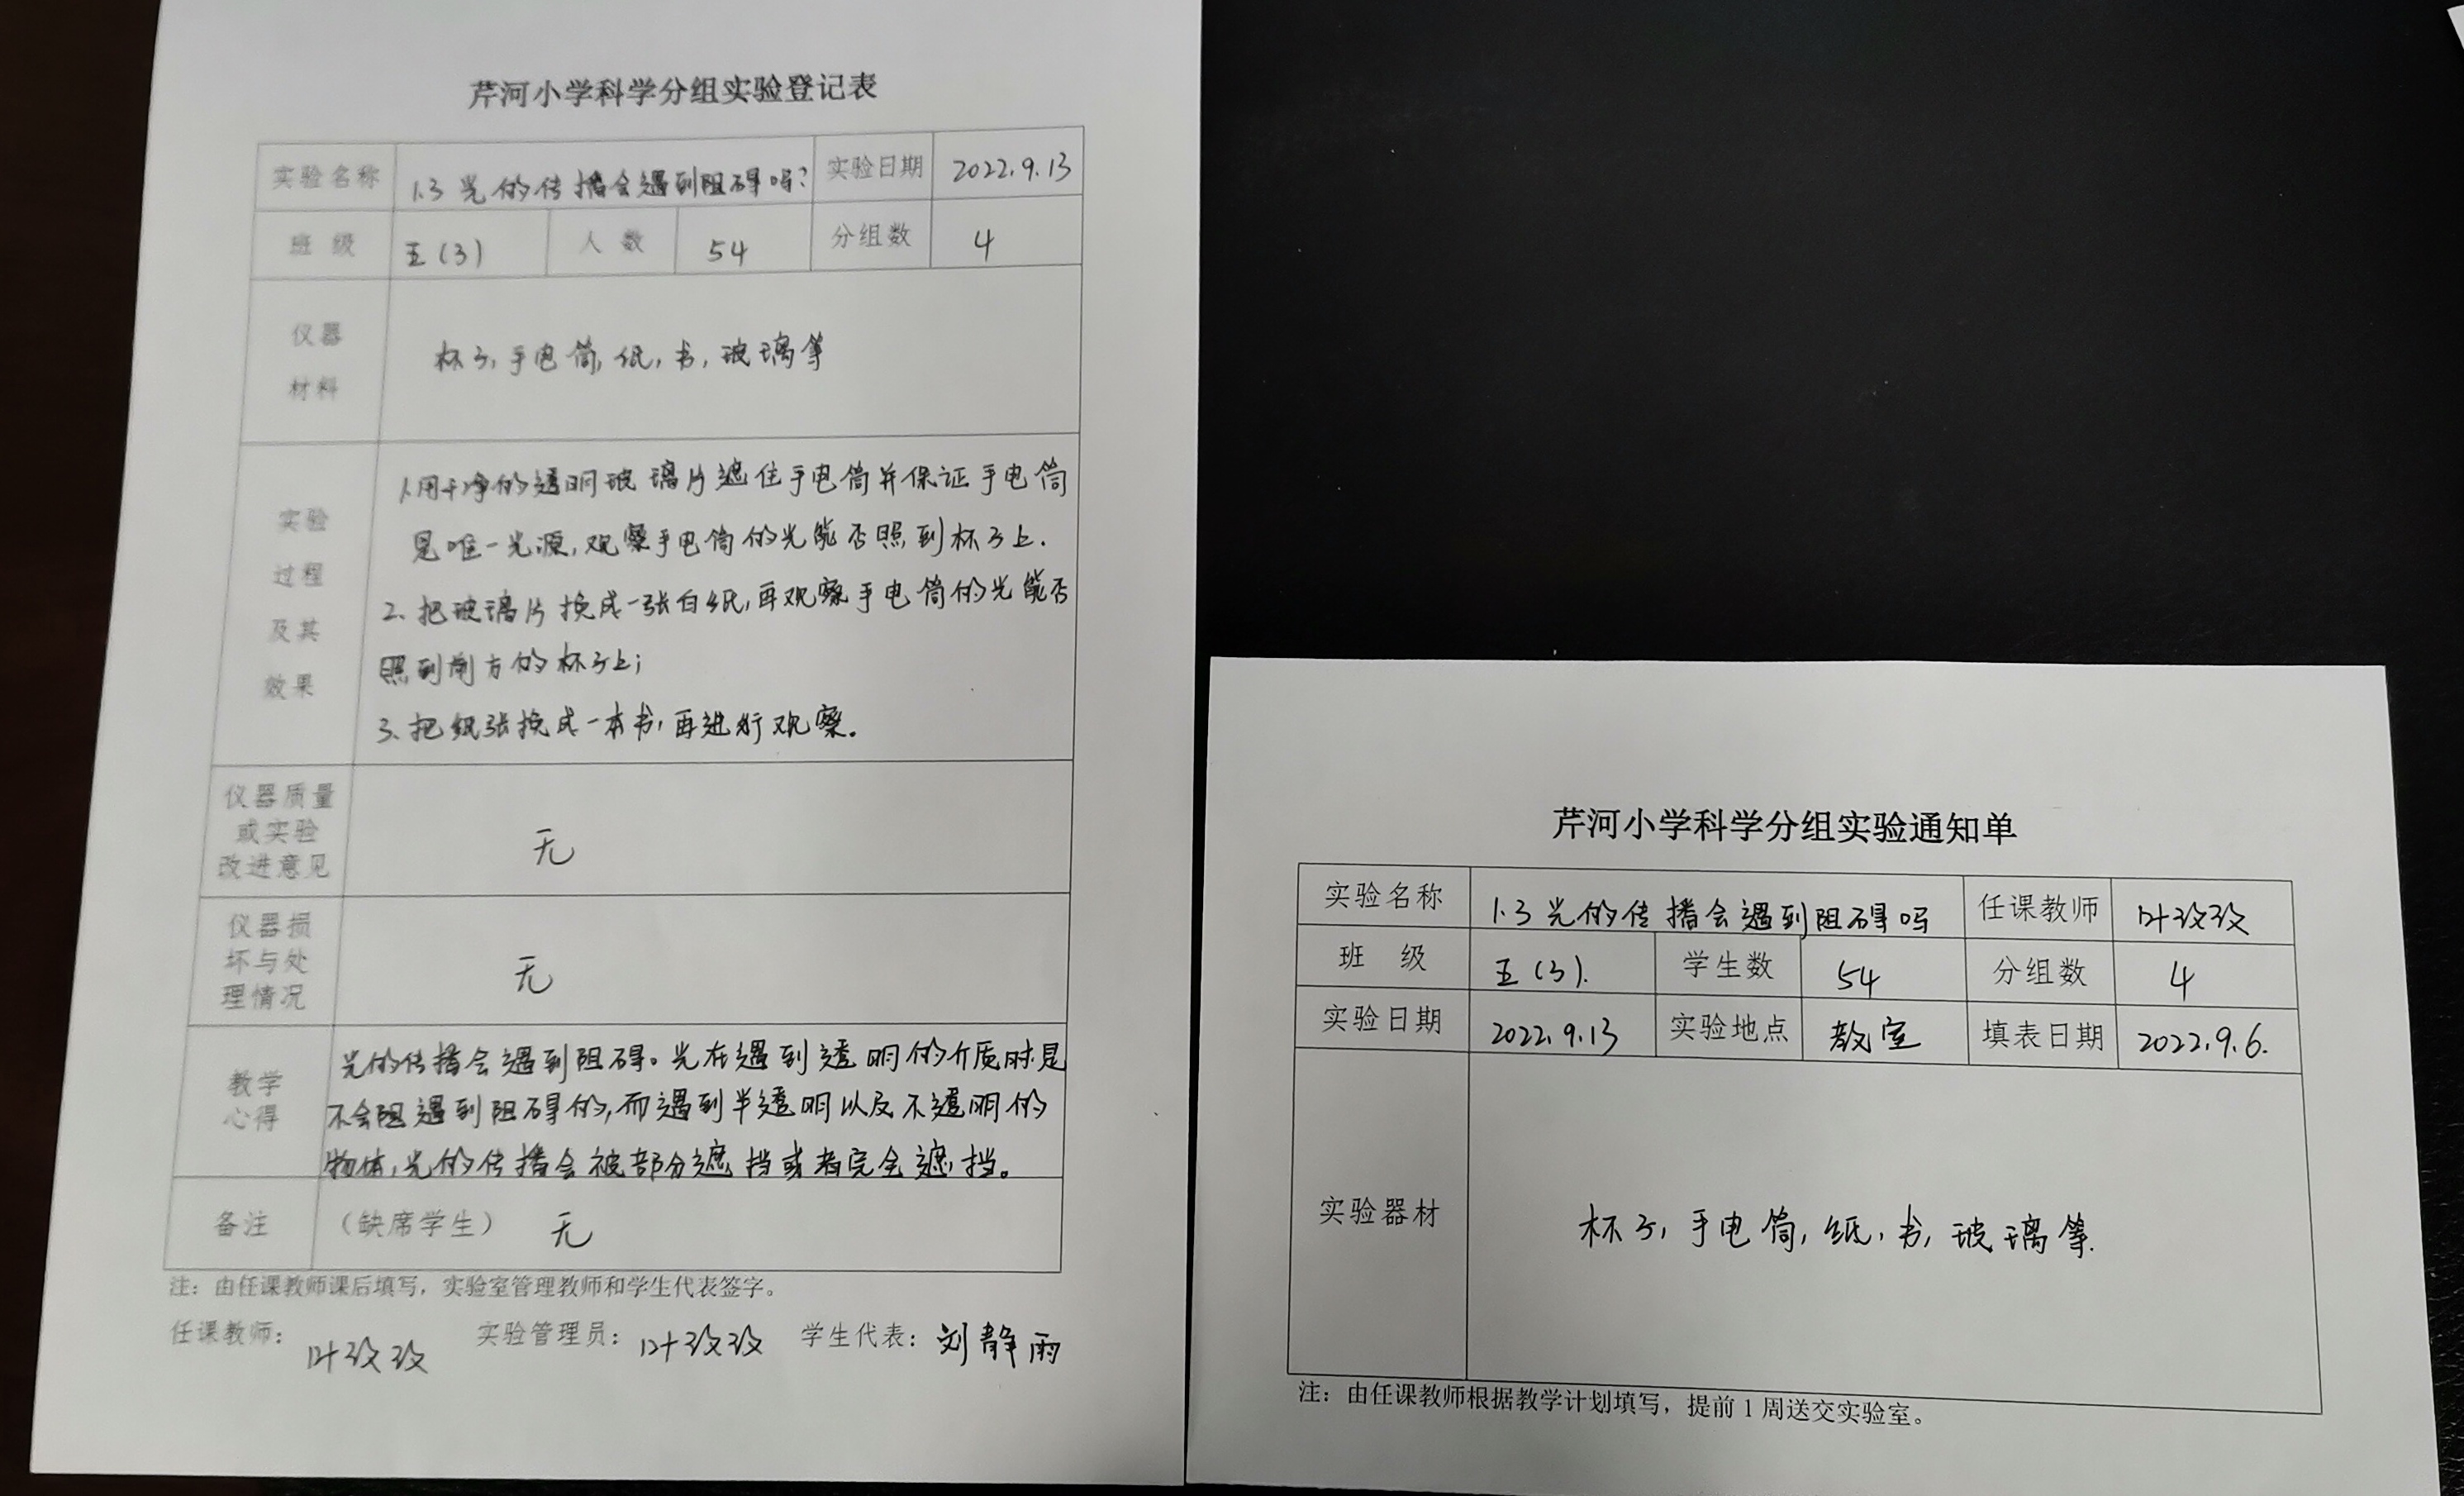 芹河小学科学分组实验登记表
实验名称 1.3 光的传播会遇到阻碍吗? 实验日期 2022.9.13
班 级 五(3) 人 数 54 分组数 4
仪器
材料
杯子,手电筒,纸,书,玻璃等
实验
过程
及其
效果
1.用干净的透明玻璃片遮住手电筒并保证手电筒
是唯一光源,观察手电筒的光能否照到杯子上.
2.把玻璃片换成一张白纸,再观察手电筒的光能否
照到前方的杯子上;
3.把纸张换成一本书,再进行观察。
仪器质量
或实验
改进意见
无
仪器损
坏与处
理情况
无
教学
心得
光的传播会遇到阻碍。光在遇到透明的介质时是
不会阻遇到阻碍的,而遇到半透明以及不透明的
物体,光的传播会被部分遮挡或者完全遮挡。
备注 (缺席学生) 无
注:由任课教师课后填写,实验室管理教师和学生代表签字。
任课教师: 叶玫玫 实验管理员: 叶玫玫 学生代表: 刘静雨
芹河小学科学分组实验通知单
实验名称 1.3 光的传播会遇到阻碍吗 任课教师 叶玫玫
班 级 五(3). 学生数 54 分组数 4
实验日期 2022.9.13 实验地点 教室 填表日期 2022.9.6.
实验器材 杯子,手电筒,纸,书,玻璃等.
注:由任课教师根据教学计划填写,提前1周送交实验室。